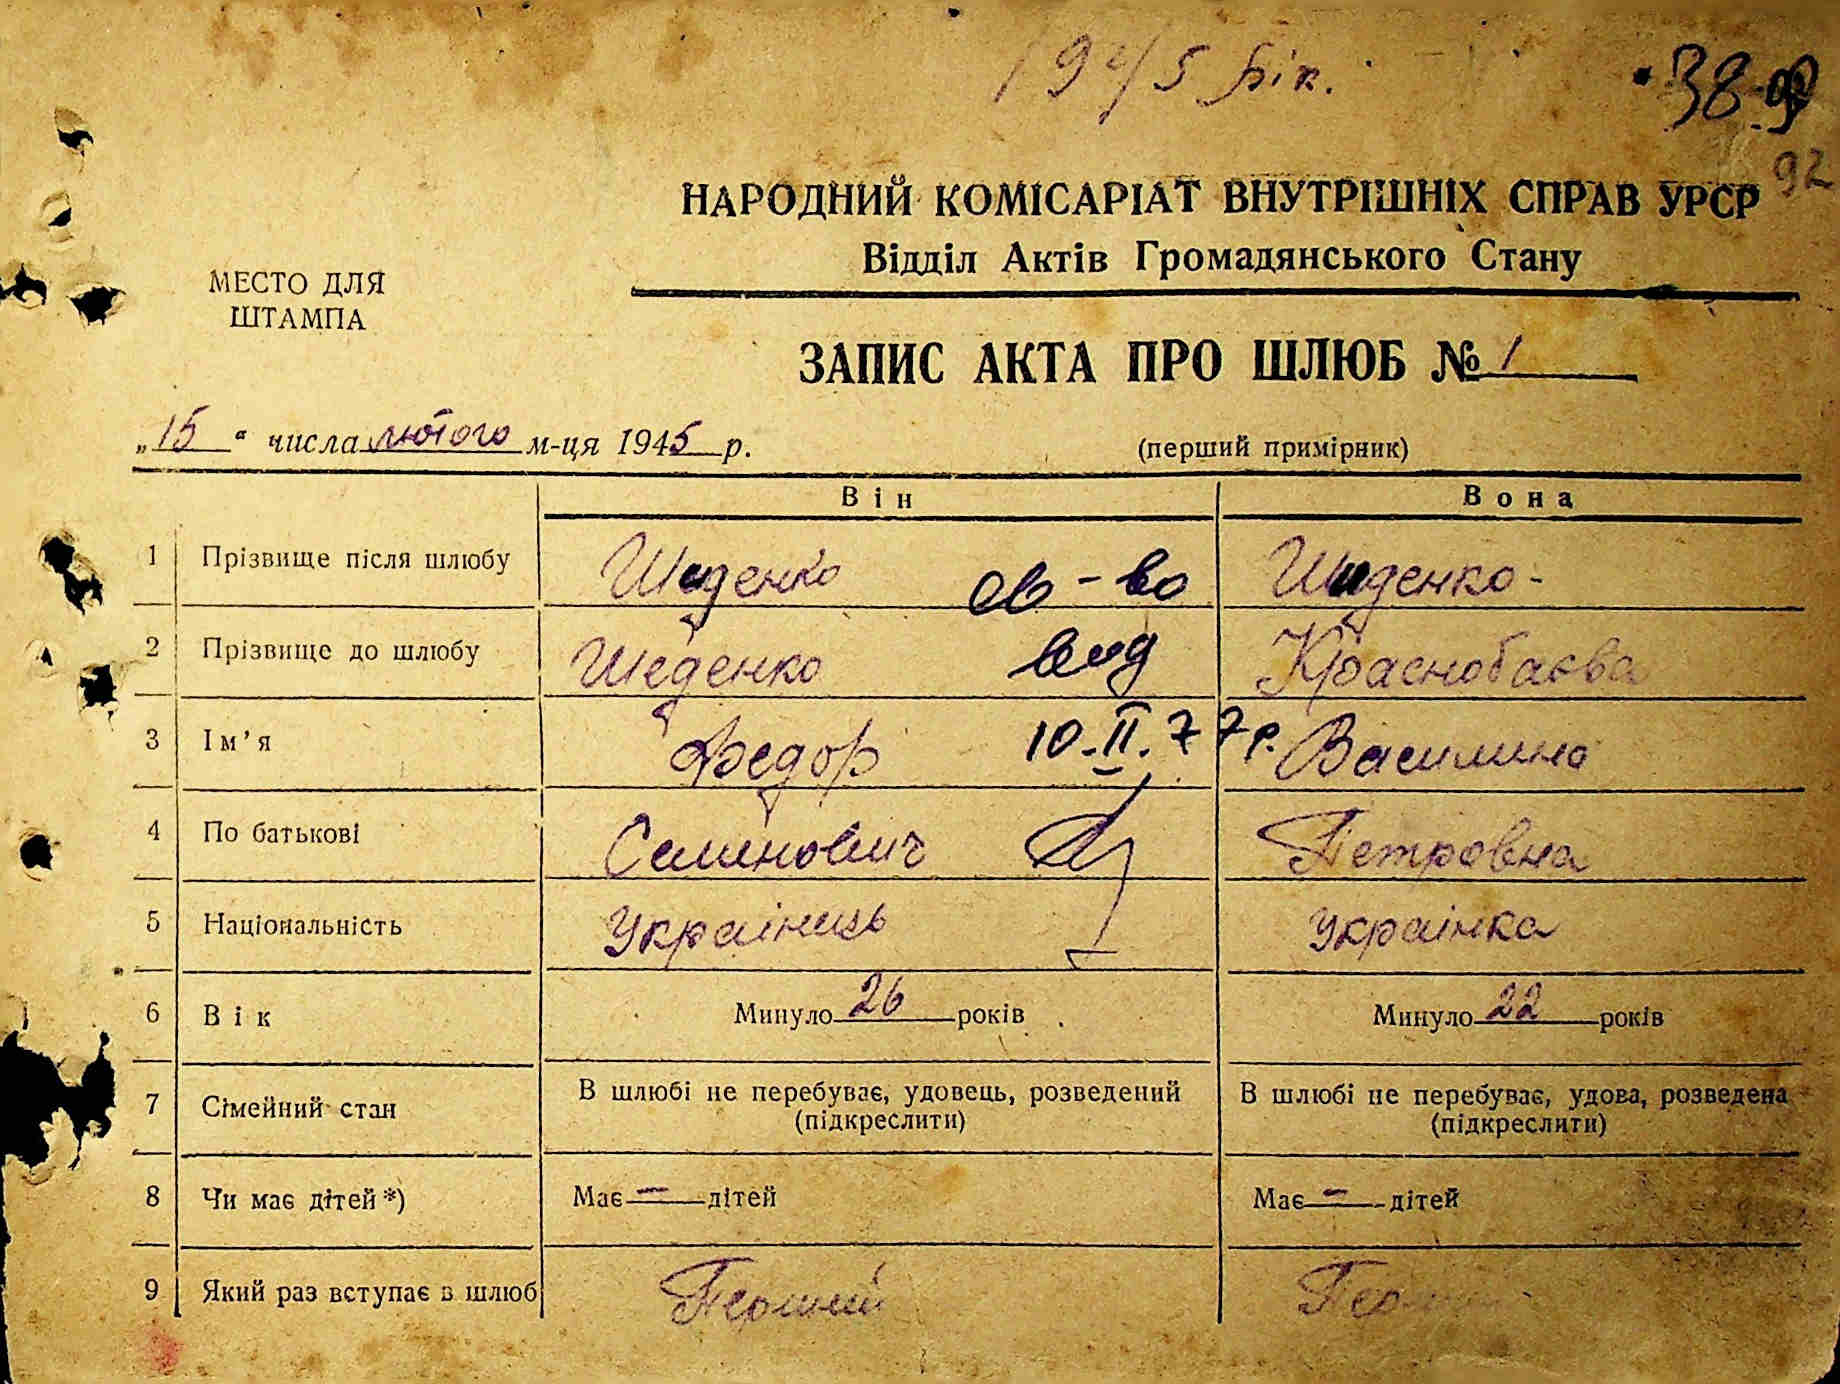 1945 рік.
38
92
НАРОДНИЙ КОМІСАРІАТ ВНУТРІШНІХ СПРАВ УРСР
Відділ Актів Громадянського Стану
МЕСТО ДЛЯ
ШТАМПА
ЗАПИС АКТА ПРО ШЛЮБ № 1
„15“ числа лютого м-ця 1945 р.
(перший примірник)
Він Вона
1 Прізвище після шлюбу Шеденко св-во Шеденко-
2 Прізвище до шлюбу Шеденко вид Краснобаєва
3 Ім’я Федор 10.II.77р. Василина
4 По батькові Семенович Петровна
5 Національність Українець Українка
6 Вік Минуло 26 років Минуло 22 років
7 Сімейний стан В шлюбі не перебуває, удовець, розведений (підкреслити) В шлюбі не перебуває, удова, розведена (підкреслити)
8 Чи має дітей *) Має — дітей Має — дітей
9 Який раз вступає в шлюб Перший